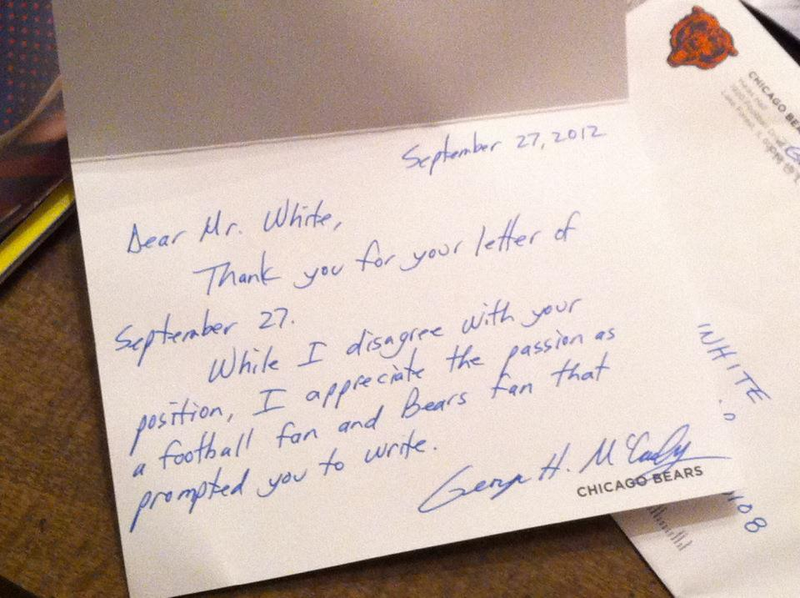 September 27, 2012
Dear Mr. White,
Thank you for your letter of
September 27.
While I disagree with your
position, I appreciate the passion as
a football fan and Bears fan that
prompted you to write.
George H. McCaskey
CHICAGO BEARS
CHICAGO BEA
Halas Hall
1000 Football Drive
Lake Forest, IL
WHITE